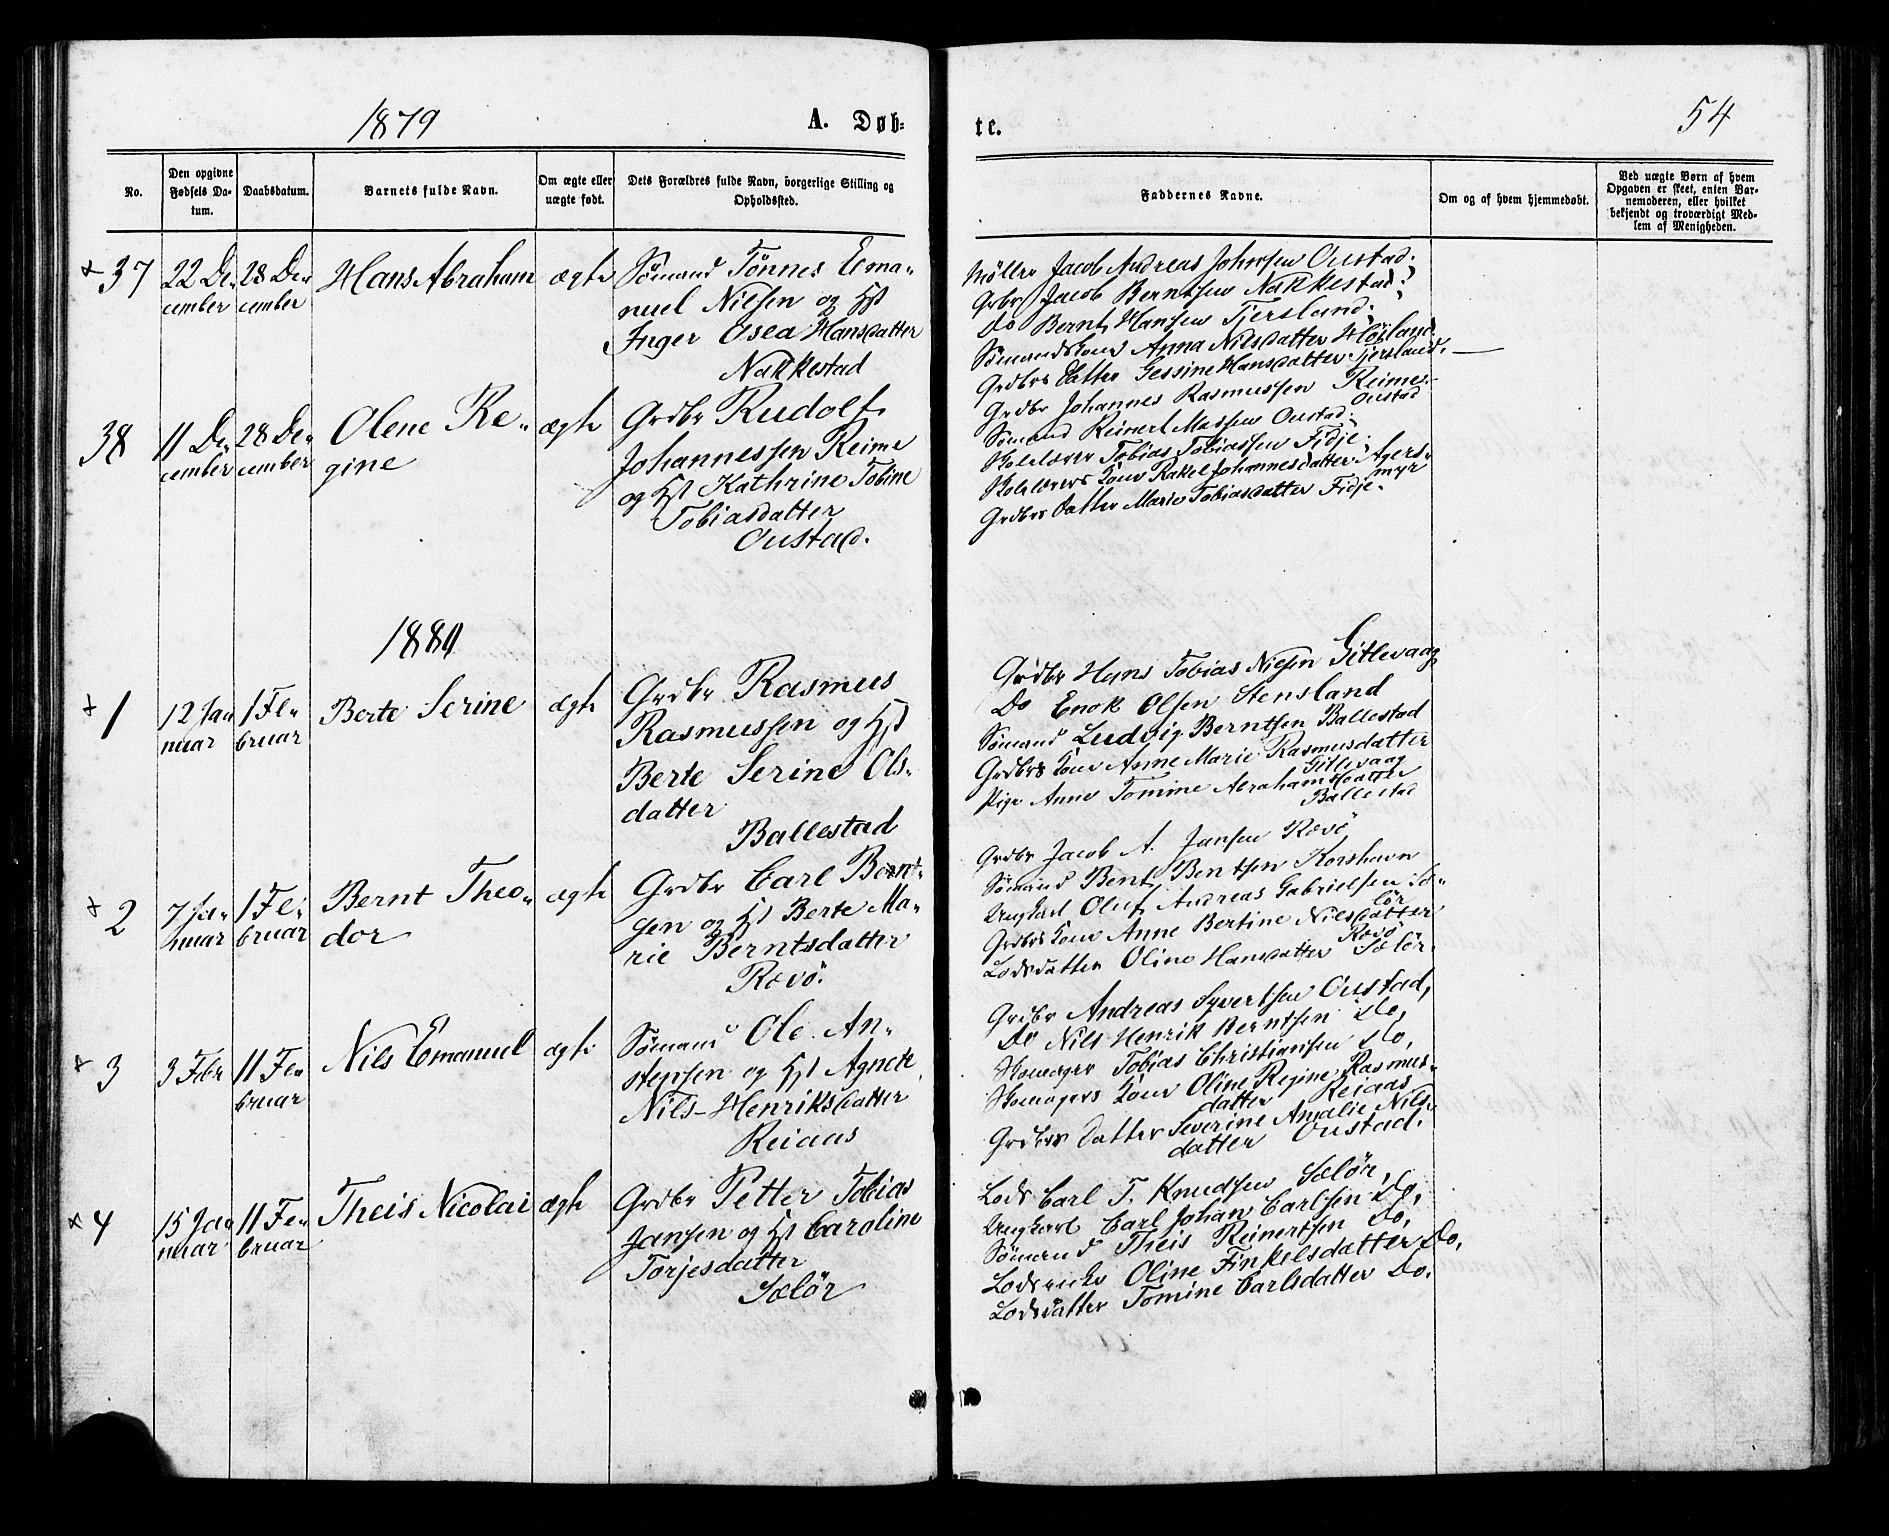 1879
A. Døb-
te.
54
No.
Den opgivne Fødsels Da-tum.
Daabsdatum.
Barnets fulde Navn.
Om ægte eller uægte født.
Dets Forældres fulde Navn, borgerlige Stilling og Opholdssted.
Faddernes Navne.
Om og af hvem hjemmedøbt.
Ved uægte Børn af hvem Opgaven er skeet, enten Bar-nemoderen, eller hvilket bekjendt og troværdigt Med-lem af Menigheden.
37
22 De-
cember
28 De-
cember
Hans Abraham
ægte
Sømand Tønnes Ema-
nuel Nilsen og Hst
Inger Osea Hansdatter
Nakkestad
Møller Jacob Andreas Johnsen Oustad.
Grbr Jacob Berntsen Nakkestad.
Do Bernt Hansen Tjersland.
Sømandskone Anna Nilsdatter Høiland.
Grdbrs Datter Gessine Hansdatter Tjersland.
38
11 De-
cember
28 De-
cember
Olene Re-
gine
ægte
Grdbr Rudolf
Johannessen Reime
og Hst Kathrine Tobine
Tobiasdatter
Oustad.
Grdbr Johannes Rasmussen Reime
Oustad
Sømand Reinert Massen Oustad.
Skolelærer Tobias Tobiassen Fidje.
Skolelærers Kone Rakel Johannesdatter Agers-
myr
Grdbrs Datter Marie Tobiasdatter Fidje.
1880
1
12 Ja-
nuar
1 Fe-
bruar
Berte Serine
ægte
Grdbr Rasmus
Rasmussen og Hst
Berte Serine Ols-
datter
Ballestad
Grdbr Hans Tobias Nilsen Gitlevaag
Do Enok Olsen Stensland
Sømand Ludvig Berntsen Ballestad
Grdbrs Kone Anne Marie Rasmusdatter
Gitlevaag
Pige Anne Tomine Abrahamsdatter
Ballestad
2
7 Ja-
nuar
1 Fe-
bruar
Bernt Theo-
dor
ægte
Grdbr Carl Bernt-
sen og Hst Berte Ma-
rie Berntsdatter
Rævø.
Grdbr Jacob A. Jansen Rævø
Sømand Bent Bentsen Korshavn
Ungkarl Oluf Andreas Gabrielsen Sæ-
lør
Grdbrs Kone Anne Bertine Nilsdatter
Rævø
Lodsdatter Oline Hansdatter Sælør.
3
3 Febr
11 Fe-
bruar
Nils Emanuel
ægte
Sømand Ole An-
stensen og Hst Agnete
Nils-Henriksdatter
Reiaas
Grdbr Andreas Syvertsen Oustad,
Do Nils Henrik Berntsen Do,
Skomager Tobias Christiansen Do,
Skomagers Kone Oline Regine Rasmus-
datter Reiaas
Grdbrs Datter Severine Amalie Nils-
datter Oustad.
4
15 Ja-
nuar
11 Fe-
bruar
Theis Nicolai
ægte
Grdbr Petter Tobias
Jansen og Hst Caroline
Torjesdatter
Sælør
Lods Carl T. Knudsen Sælør,
Ungkarl Carl Johan Carlsen Do,
Sømand Theis Reinertsen Do,
Lodsenke Oline Finkelsdatter Do,
Lodsdatter Tomine Carlsdatter Do.